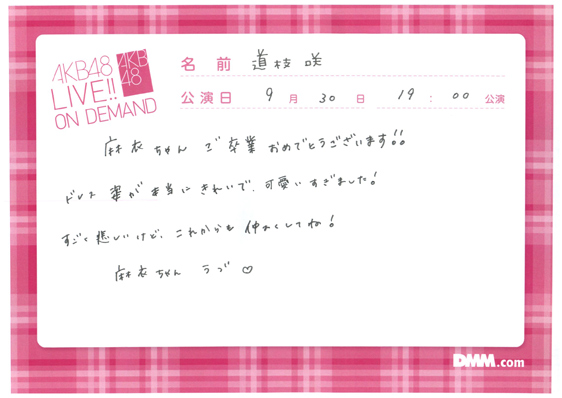 AKB48
LIVE!!
ON DEMAND
AKB
48
名 前 道枝 咲
公演日 9 月 30 日 19 : 00 公演
麻衣ちゃん ご卒業おめでとうございます!!
ドレス姿が本当にきれいで、可愛いすぎました!
すごく悲しいけど、これからも仲よくしてね!
麻衣ちゃん らぶ♡
DMM.com